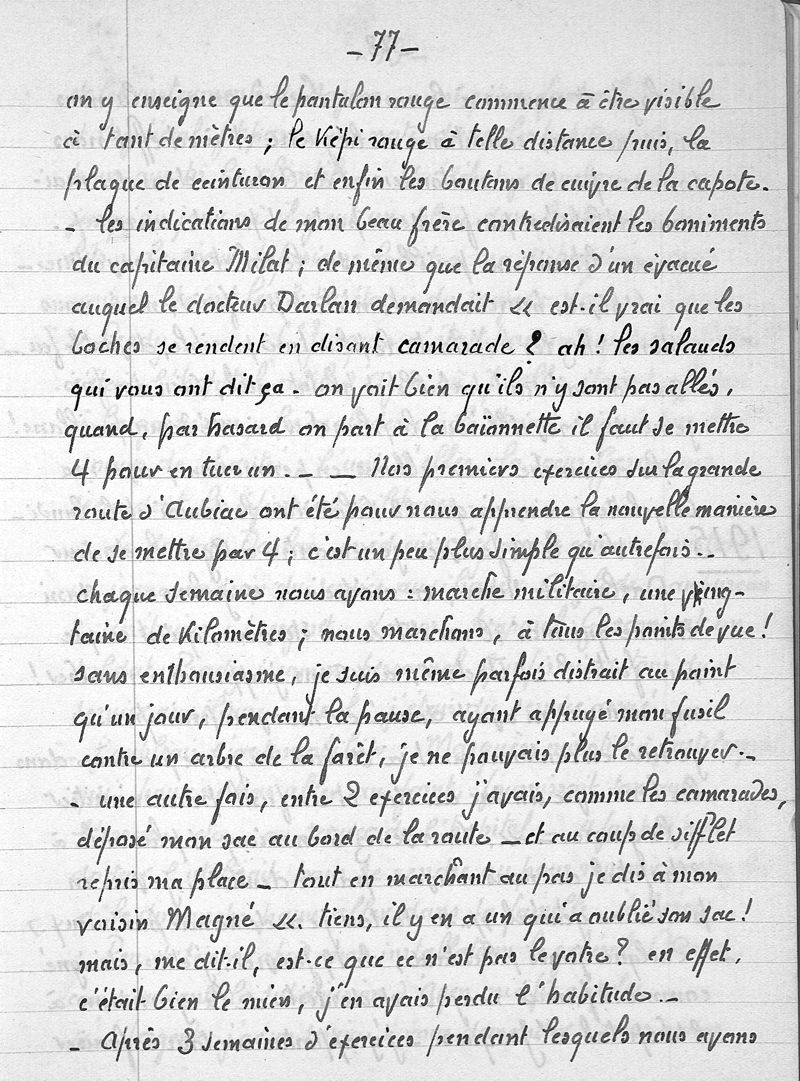 – 77 –
on y enseigne que le pantalon rouge commence à être visible
à tant de mètres ; le Képi rouge à telle distance puis, la
plaque de ceinturon et enfin les boutons de cuivre de la capote.
- les indications de mon beau frère contredisaient les boniments
du capitaine Milat ; de même que la réponse d'un évacué
auquel le docteur Darlan demandait « est-il vrai que les
boches se rendent en disant camarade ? ah ! les salauds
qui vous ont dit ça. on voit bien qu'ils n'y sont pas allés,
quand, par hasard on part à la baïonnette il faut se mettre
4 pour en tuer un. – – Nos premiers exercices sur la grande
route d'Aubiac ont été pour nous apprendre la nouvelle manière
de se mettre par 4 ; c'est un peu plus simple qu'autrefois. -
chaque semaine nous avons : marche militaire, une ving-
taine de Kilomètres ; nous marchons, à tous les points de vue !
sans enthousiasme, je suis même parfois distrait au point
qu'un jour, pendant la pause, ayant appuyé mon fusil
contre un arbre de la forêt, je ne pouvais plus le retrouver. -
- une autre fois, entre 2 exercices j'avais, comme les camarades,
déposé mon sac au bord de la route – et au coup de sifflet
repris ma place – tout en marchant au pas je dis à mon
voisin Magné «. tiens, il y en a un qui a oublié son sac !
mais, me dit-il, est-ce que ce n'est pas le votre ? en effet,
c'était bien le mien, j'en avais perdu l'habitude. -
- Après 3 semaines d'exercices pendant lesquels nous avons